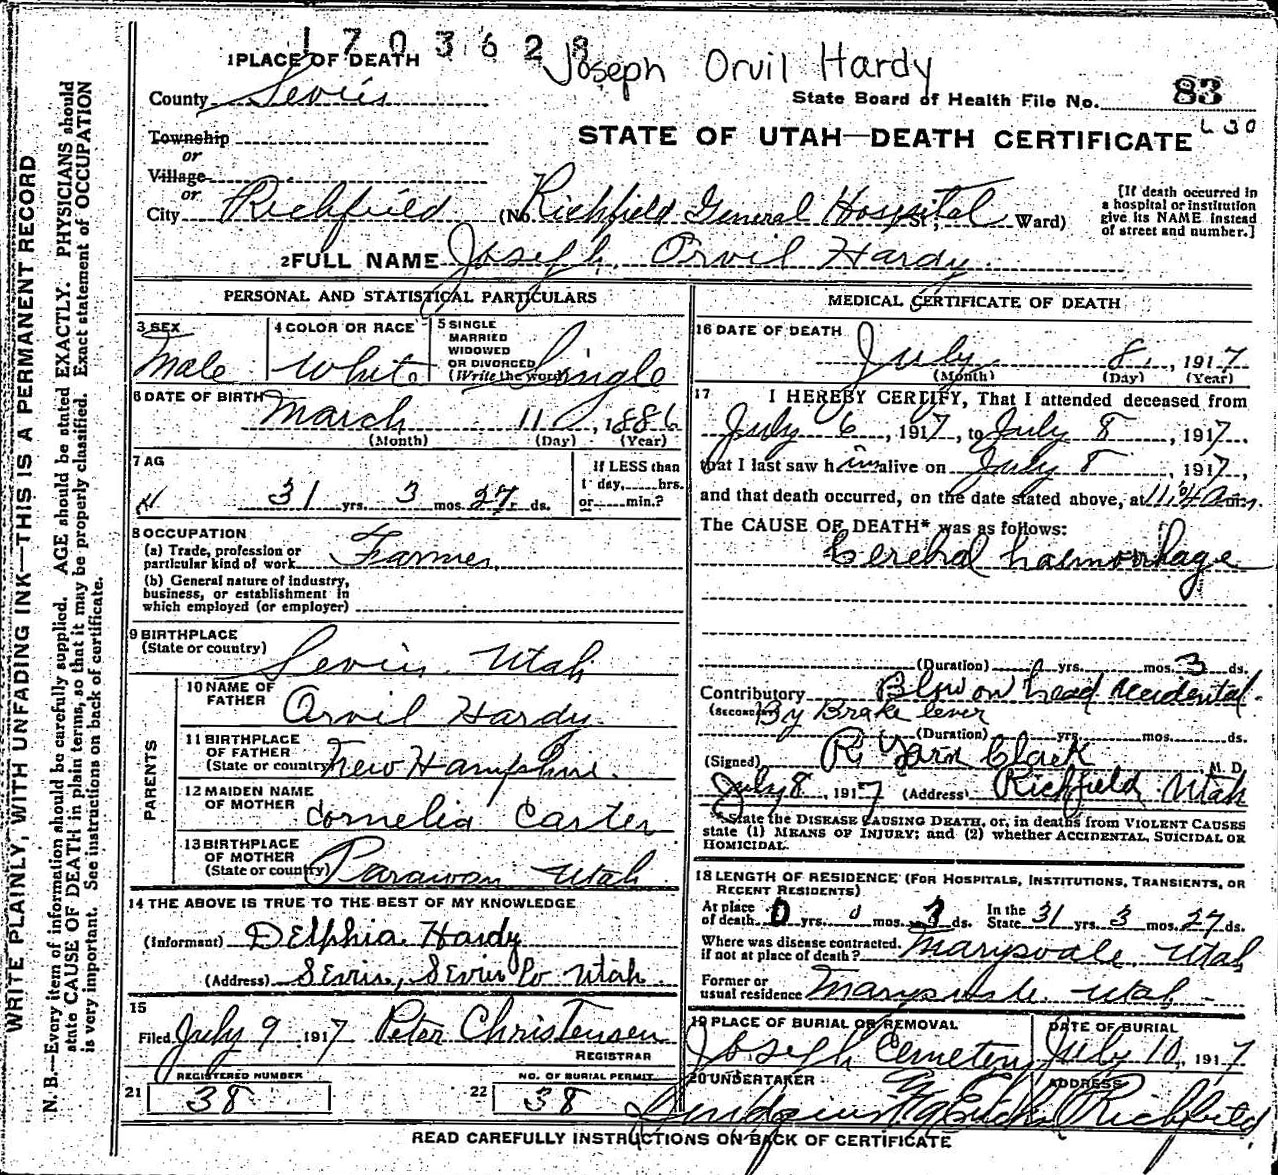 1703628
Joseph Orvil Hardy
1 PLACE OF DEATH
County Sevier
State Board of Health File No. 83
Township
or
Village
or
STATE OF UTAH—DEATH CERTIFICATE
City Richfield (No. Richfield General Hospital St; Ward)
[If death occurred in a hospital or institution give its NAME instead of street and number.]
2 FULL NAME Joseph Orvil Hardy
PERSONAL AND STATISTICAL PARTICULARS
3 SEX
Male
4 COLOR OR RACE
White
5 SINGLE
MARRIED
WIDOWED
OR DIVORCED
(Write the word) Single
6 DATE OF BIRTH
March 11, 1886
(Month) (Day) (Year)
7 AG
31 yrs. 3 mos. 27 ds.
If LESS than
1 day,......hrs.
or......min.?
8 OCCUPATION
(a) Trade, profession or
particular kind of work Farmer
(b) General nature of industry,
business, or establishment in
which employed (or employer)
9 BIRTHPLACE
(State or country)
Sevier Utah
PARENTS
10 NAME OF
FATHER
Orvil Hardy
11 BIRTHPLACE
OF FATHER
(State or country) New Hampshire.
12 MAIDEN NAME
OF MOTHER
Cornelia Carter
13 BIRTHPLACE
OF MOTHER
(State or country) Parawon Utah
14 THE ABOVE IS TRUE TO THE BEST OF MY KNOWLEDGE
(Informant) Delphia Hardy
(Address) Sevier, Sevier Co Utah
15
Filed July 9, 1917 Peter Christensen
REGISTRAR
REGISTERED NUMBER
21 38
NO. OF BURIAL PERMIT
22 38
MEDICAL CERTIFICATE OF DEATH
16 DATE OF DEATH
July 8, 1917
(Month) (Day) (Year)
17 I HEREBY CERTIFY, That I attended deceased from
July 6, 1917, to July 8, 1917.
that I last saw him alive on July 8, 1917,
and that death occurred, on the date stated above, at
The CAUSE OF DEATH* was as follows:
Cerebral haemorrhage
(Duration) yrs. mos. 3 ds.
Contributory Blow on head Accidental.
(SECONDARY) By Brake lever
(Duration) yrs. mos. ds.
(Signed) R. Clark M. D.
July 8, 1917 (Address) Richfield Utah
*State the DISEASE CAUSING DEATH, or, in deaths from VIOLENT CAUSES
state (1) MEANS OF INJURY; and (2) whether ACCIDENTAL, SUICIDAL OR
HOMICIDAL.
18 LENGTH OF RESIDENCE (FOR HOSPITALS, INSTITUTIONS, TRANSIENTS, OR
RECENT RESIDENTS)
At place
of death 0 yrs. 0 mos. ds. In the
State 31 yrs. 3 mos. 27 ds.
Where was disease contracted,
if not at place of death? Marysvale, Utah
Former or
usual residence Marysvale Utah
19 PLACE OF BURIAL OR REMOVAL
Joseph Cemetery
DATE OF BURIAL
July 10, 1917
20 UNDERTAKER
ADDRESS
Richfield
READ CAREFULLY INSTRUCTIONS ON BACK OF CERTIFICATE
WRITE PLAINLY, WITH UNFADING INK—THIS IS A PERMANENT RECORD
N. B.—Every item of information should be carefully supplied. AGE should be stated EXACTLY. PHYSICIANS should
state CAUSE OF DEATH in plain terms, so that it may be properly classified. Exact statement of OCCUPATION
is very important. See instructions on back of certificate.